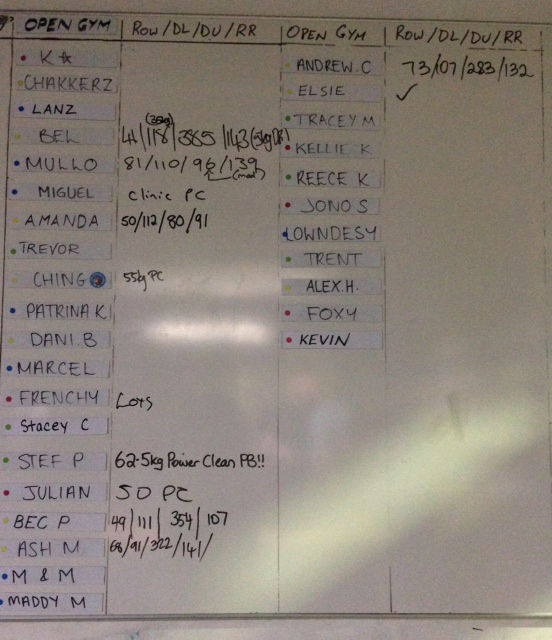 OPEN GYM Row/DL/DU/RR OPEN GYM Row/DL/DU/RR
K ☆
CHAKKERZ
LANZ
BEL 44/118/385/143
MULLO 81/110/96/139
MIGUEL clinic PC
AMANDA 50/112/80/91
TREVOR
CHING 55kg PC
PATRINA K
DANI B
MARCEL
FRENCHY Lots
Stacey C
STEF P 62.5kg Power Clean PB!!
JULIAN 50 PC
BEC P 49/111/354/107
ASH M 68/91/322/141/
M & M
MADDY M
ANDREW.C 73/07/283/132
ELSIE ✓
TRACEY M
KELLIE K
REECE K
JONO S
LOWNDESY
TRENT
ALEX.H.
FOXY
KEVIN